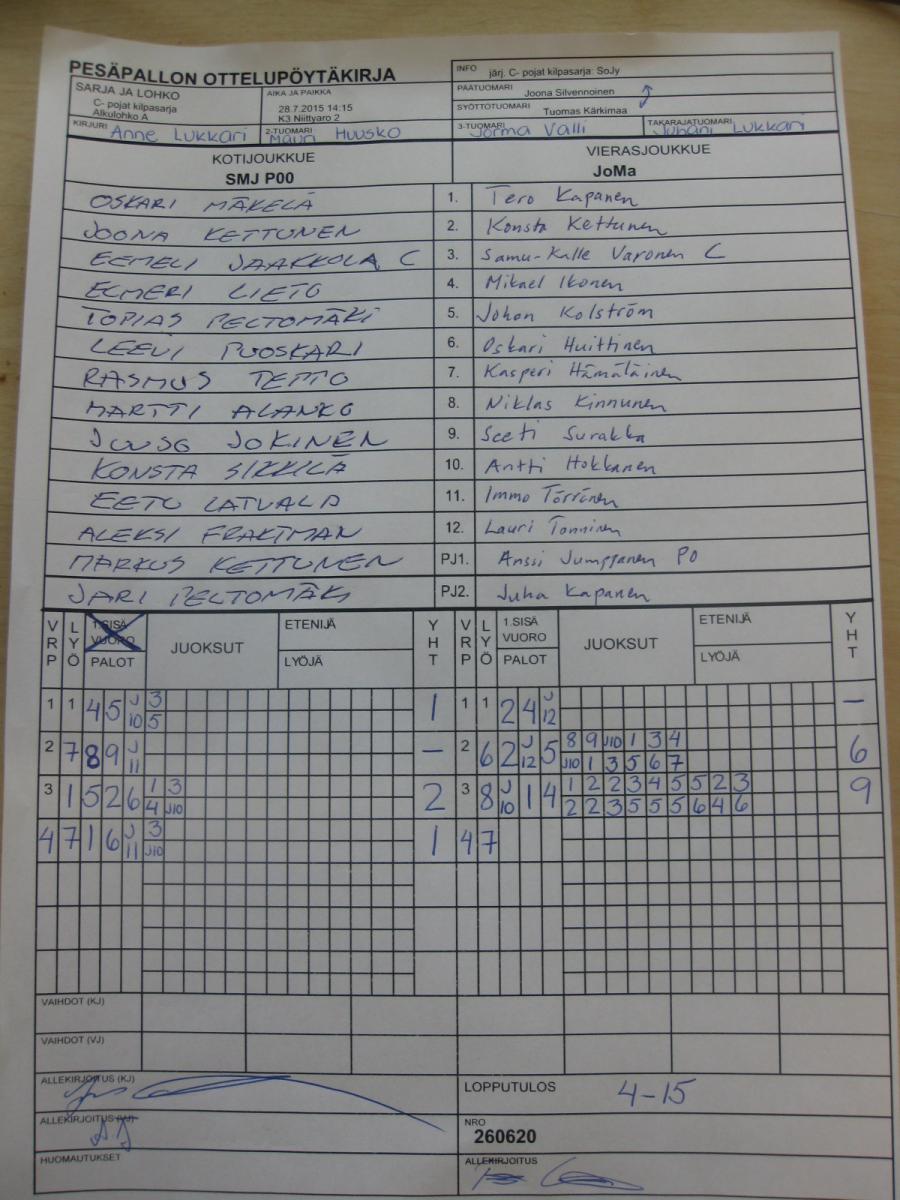 PESÄPALLON OTTELUPÖYTÄKIRJA
INFO järj. C- pojat kilpasarja: SoJy
SARJA JA LOHKO
C- pojat kilpasarja
Alkulohko A
AIKA JA PAIKKA
28.7.2015 14:15
K3 Niittyaro 2
PÄÄTUOMARI Joona Silvennoinen
SYÖTTÖTUOMARI Tuomas Kärkimaa
KIRJURI Anne Lukkari 2-TUOMARI Mauri Huusko 3-TUOMARI Jorma Valli TAKARAJATUOMARI Juhani Lukkari
KOTIJOUKKUE VIERASJOUKKUE
SMJ P00 JoMa
OSKARI MÄKELÄ 1. Tero Kapanen
JOONA KETTUNEN 2. Konsta Kettunen
EEMELI JAAKKOLA C 3. Samu-Kalle Varonen C
ELMERI LIETO 4. Mikael Ikonen
TOPIAS PELTOMÄKI 5. Johan Kolström
LEEVI PUOSKARI 6. Oskari Huittinen
RASMUS TEPPO 7. Kasperi Hämäläinen
MARTTI ALANKO 8. Niklas Kinnunen
JUUSO JOKINEN 9. Seeti Surakka
KONSTA SIKKILÄ 10. Antti Hokkanen
EETU LATVALA 11. Immo Törrönen
ALEKSI FRAKTMAN 12. Lauri Tonninen
MARKUS KETTUNEN PJ1. Anssi Jumppanen PO
JARI PELTOMÄKI PJ2. Juha Kapanen
VRP LYÖ 1.SISÄ VUORO PALOT JUOKSUT ETENIJÄ LYÖJÄ YHT VRP LYÖ 1.SISÄ VUORO PALOT JUOKSUT ETENIJÄ LYÖJÄ YHT
1 1 4 5 J10 3 1 1 1 2 4 J12 –
5
2 7 8 9 J11 – 2 6 2 J12 5 8 9 J10 1 3 4 6
J10 1 3 5 6 7
3 1 5 2 6 1 3 2 3 8 J10 1 4 1 2 2 3 4 5 5 2 3 9
4 J10 2 2 3 5 5 5 6 4 6
4 7 1 6 J11 3 1 4 7
J10
VAIHDOT (KJ)
VAIHDOT (VJ)
ALLEKIRJOITUS (KJ) LOPPUTULOS 4-15
ALLEKIRJOITUS (VJ) NRO
260620
HUOMAUTUKSET ALLEKIRJOITUS